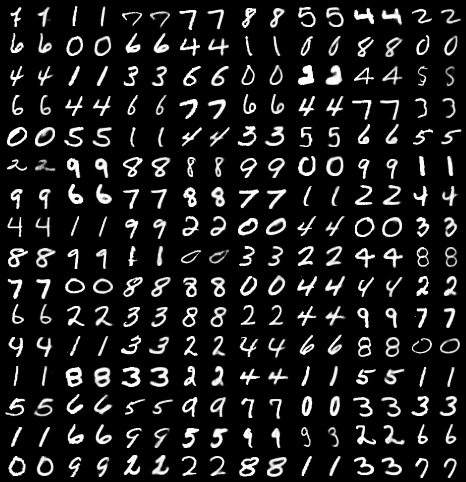 7 7 1 1 7 7 7 7 8 8 5 5 4 4 2 2
6 6 0 0 6 6 4 4 1 1 0 0 8 8 0 0
4 4 1 1 3 3 6 6 0 0 2 2 4 4 5 5
6 6 4 4 6 6 7 7 6 6 4 4 7 7 3 3
0 0 5 5 1 1 4 4 3 3 5 5 6 6 5 5
2 2 9 9 8 8 8 8 9 9 0 0 9 9 1 1
9 9 6 6 7 7 8 8 7 7 1 1 2 2 4 4
4 4 1 1 9 9 2 2 0 0 4 4 0 0 3 3
8 8 9 9 1 1 0 0 3 3 2 2 4 4 8 8
7 7 0 0 8 8 8 8 0 0 4 4 4 4 2 2
6 6 2 2 3 3 8 8 2 2 4 4 9 9 7 7
9 9 1 1 3 3 2 2 4 4 6 6 8 8 0 0
1 1 8 8 3 3 2 2 4 4 1 1 5 5 1 1
5 5 6 6 5 5 9 9 7 7 0 0 3 3 3 3
1 1 6 6 9 9 5 5 9 9 9 3 2 2 6 6
0 0 9 9 2 2 2 2 8 8 1 1 3 3 7 7